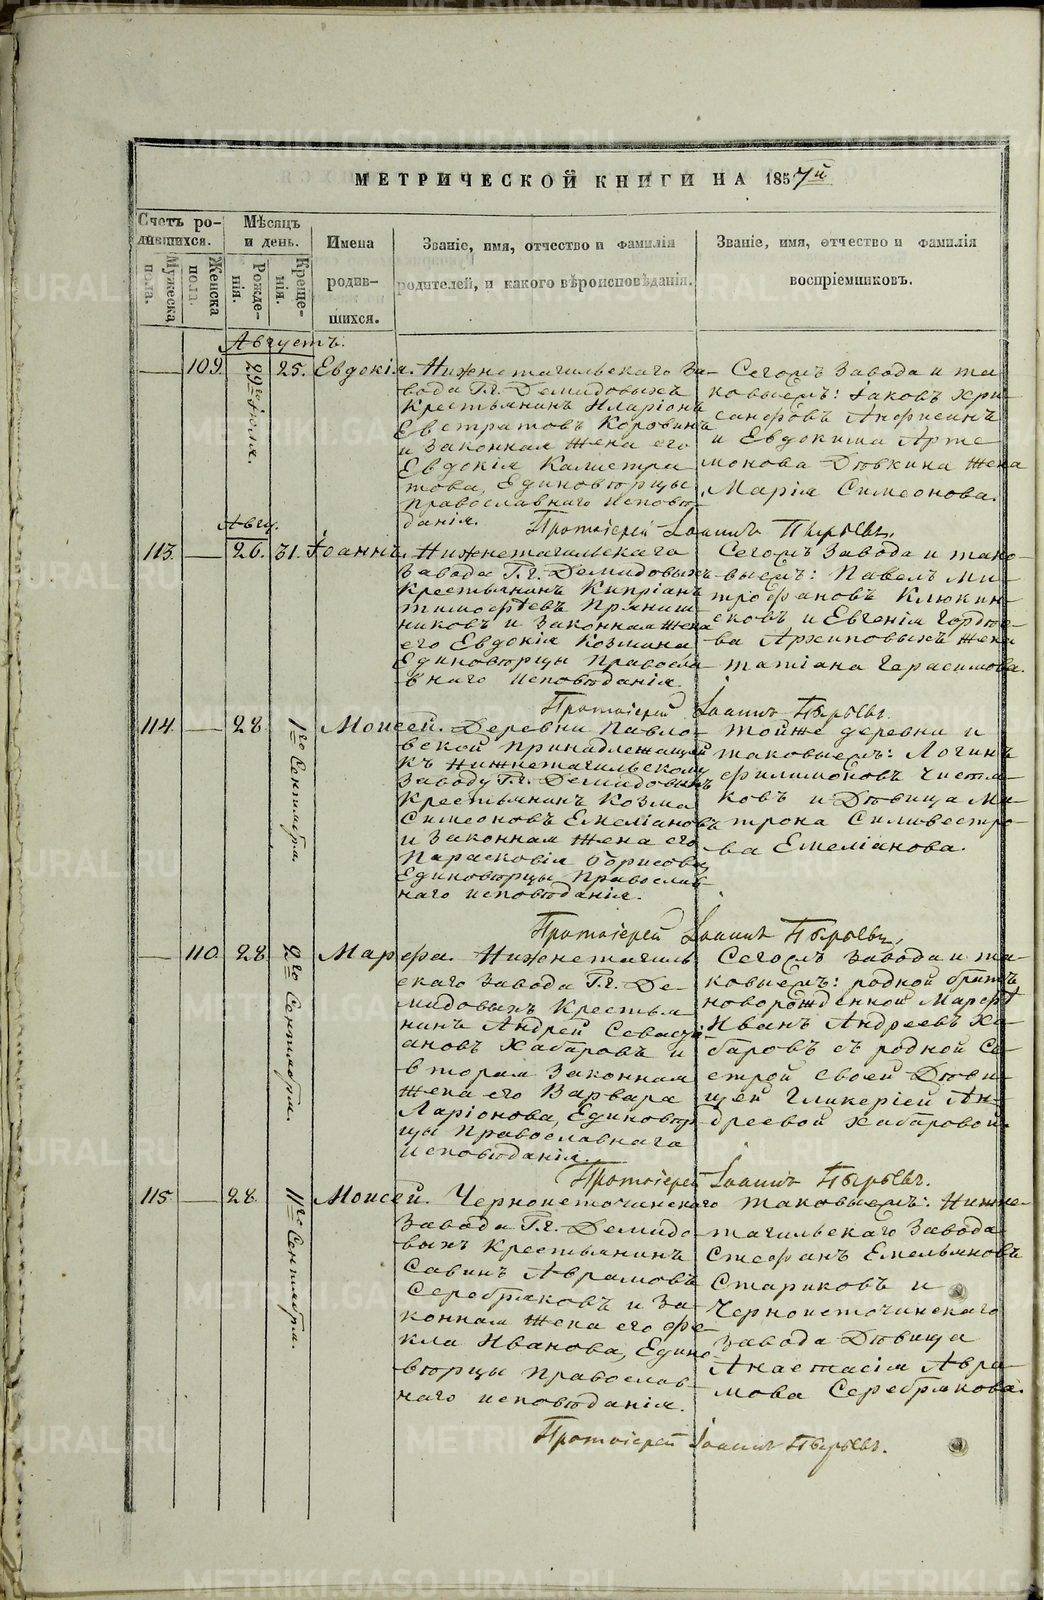 МЕТРИЧЕСКОЙ КНИГИ НА 1857й
Счетъ ро-
дившихся.
Мужеска
пола.
Женска
пола.
Мѣсяцъ
и день.
Рожде-
нія.
Креще-
нія.
Имена
родив-
шихся.
Званіе, имя, отчество и фамилія
родителей, и какого вѣроисповѣданія.
Званіе, имя, отчество и фамилія
воспріемниковъ.
Августъ.
109.
29го Іюля.
25.
Евдокія.
Нижнетагильскаго За-
вода Г.г. Демидовыхъ
Крестьянинъ Иларіонъ
Евстратовъ Коровинъ
и Законная жена его
Евдокія Калистра
това, Единовѣрцы
Православнаго исповѣ
данія.
Сегожъ Завода и та
ковыежъ: Іаковъ Хри-
санфовъ Анфисинъ
и Евдокима Арте
монова Дѣвкина жена
Марія Симеонова.
Протоіерей Іоаннъ Пырьевъ.
Авгу.
113.
26.
31.
Іоаннъ.
Нижнетагильскаго
Завода Г.г. Демидовыхъ
Крестьянинъ Кипріанъ
Тимофѣевъ Пряниш-
никовъ и Законная жена
его Евдокія Козмина
Единовѣрцы Правосла
внаго исповѣданія.
Сегожъ Завода и тако-
выежъ: Павелъ Ми-
трофановъ Клюкин-
сковъ и Евгенія Гордѣе-
ва Архиповыхъ жена
Татіана Герасимова.
Протоіерей Іоаннъ Пырьевъ.
114.
28
1го Сентября
Моисей.
Деревни Павло-
вской принадлежащей
къ Нижнетагильскому
Заводу Г.г. Демидовыхъ
Крестьянинъ Козма
Симеоновъ Емеліановъ
и Законная жена его
Парасковія Борисова,
Единовѣрцы Православ-
наго исповѣданія.
Тойже деревни и
таковыежъ: Логинъ
Филимоновъ Чистя-
ковъ и Дѣвица Ма-
трона Силивестро-
ва Емеліанова.
Протоіерей Іоаннъ Пырьевъ.
110
28
2го Сентября.
Марфа.
Нижнетагиль
скаго Завода Г.г. Де-
мидовыхъ Крестья
нинъ Андрей Севасти-
ановъ Хабаровъ и
вторая Законная
жена его Варвара
Ларіонова, Единовѣр
цы Православнаго
исповѣданія.
Сегожъ завода и та-
ковыежъ: родной братъ
новорожденной Марфы
Иванъ Андреевъ Ха-
баровъ съ родной Се-
строй своей Дѣви-
цей Гликеріей Ан-
дреевой Хабаровой.
Протоіерей Іоаннъ Пырьевъ.
115
28
11го Сентября.
Моисей.
Черноисточинскаго
Завода Г.г. Демидо-
выхъ Крестьянинъ
Савинъ Аврамовъ
Серебряковъ и За-
конная жена его Фе-
кла Иванова, Едино-
вѣрцы Православ-
наго исповѣданія.
таковыежъ: Нижне-
тагильскаго Завода
Стефанъ Емельяновъ
Стариковъ и
Черноисточинскаго
Завода Дѣвица
Анастасія Авра-
мова Серебрякова.
Протоіерей Іоаннъ Пырьевъ.
METRIKI.GASO-URAL.RU